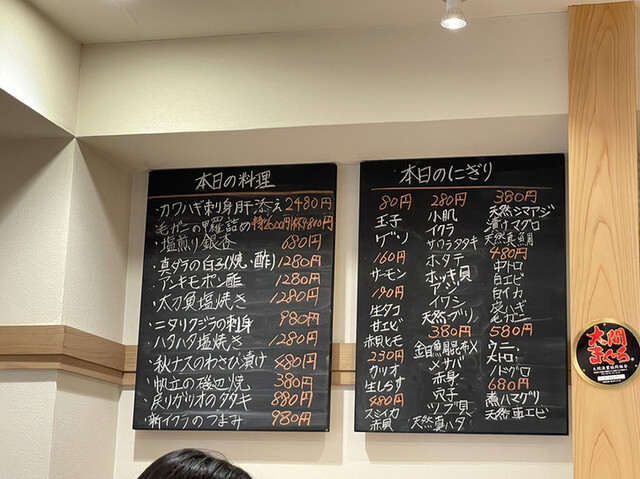 本日の料理
・カワハギ刺身肝添え 2480円
・毛ガニの甲羅詰め
・塩煎り銀杏 680円
・真ダラの白子(焼、酢) 1280円
・アンキモポン酢 1280円
・太刀魚塩焼き 1280円
・ニタリクジラの刺身 980円
・ハタハタ塩焼き 1280円
・秋ナスのわさび漬け 480円
・帆立の磯辺焼 380円
・戻りガツオのタタキ 880円
・新イクラのつまみ 980円
本日のにぎり
80円
玉子
ゲソ
160円
サーモン
190円
生タコ
甘エビ
赤貝ヒモ
230円
カツオ
生しらす
480円
スミイカ
赤貝
280円
小肌
イクラ
サワラタタキ
ホタテ
ホッキ貝
アジ
イワシ
天然ブリ
380円
金目鯛昆布〆
〆サバ
赤身
穴子
ツブ貝
天然真ハタ
380円
天然シマアジ
漬けマグロ
天然真鯛
480円
中トロ
白エビ
白イカ
炙えんがわ
毛ガニ
580円
ウニ
大トロ
ノドグロ
680円
煮ハマグリ
天然車エビ
大間
まぐろ